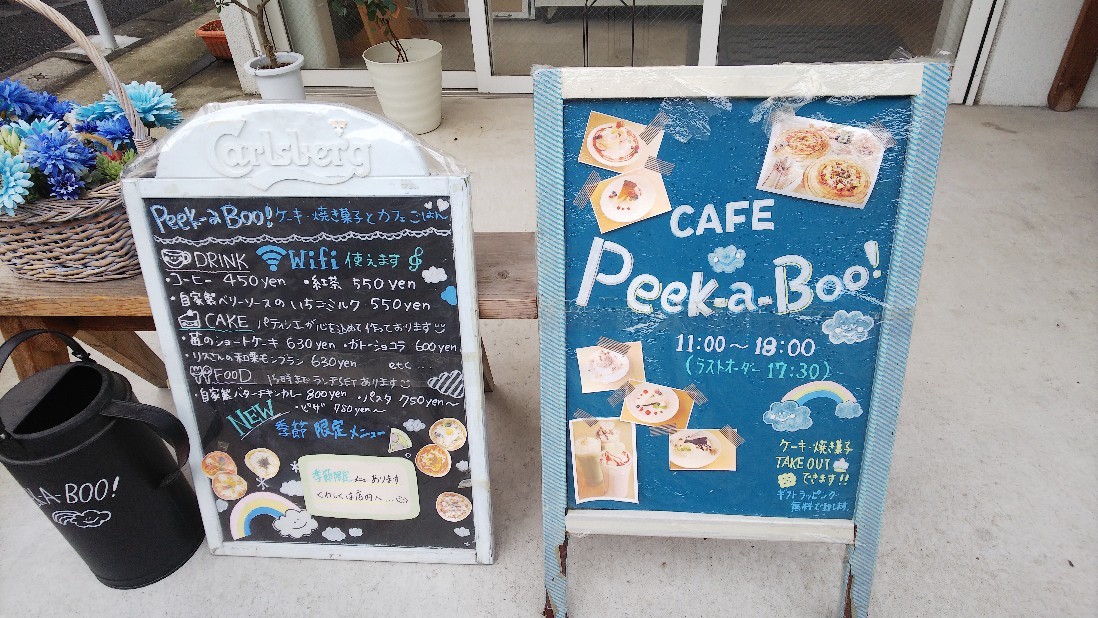 Carlsberg
Peek-a Boo! ケーキ・焼き菓子とカフェごはん
DRINK Wifi 使えます
・コーヒー 450yen ・紅茶 550yen
・自家製ベリーソースの いちごミルク 550yen
CAKE パティシエが心を込めて作っております
・苺のショートケーキ 630yen ・ガトーショコラ 600yen
・リスさんの和栗モンブラン 630yen etc...
FOOD 15時までランチSETあります
・自家製バターチキンカレー 800yen ・パスタ 750yen〜
・ピザ 750yen〜
NEW
季節限定メニュー
季節限定 あります
くわしくは店内へ...
A-BOO!
CAFE
Peek-a-Boo!
11:00〜18:00
(ラストオーダー 17:30)
ケーキ・焼き菓子
TAKE OUT
できます!!
ギフトラッピング
無料で致します。